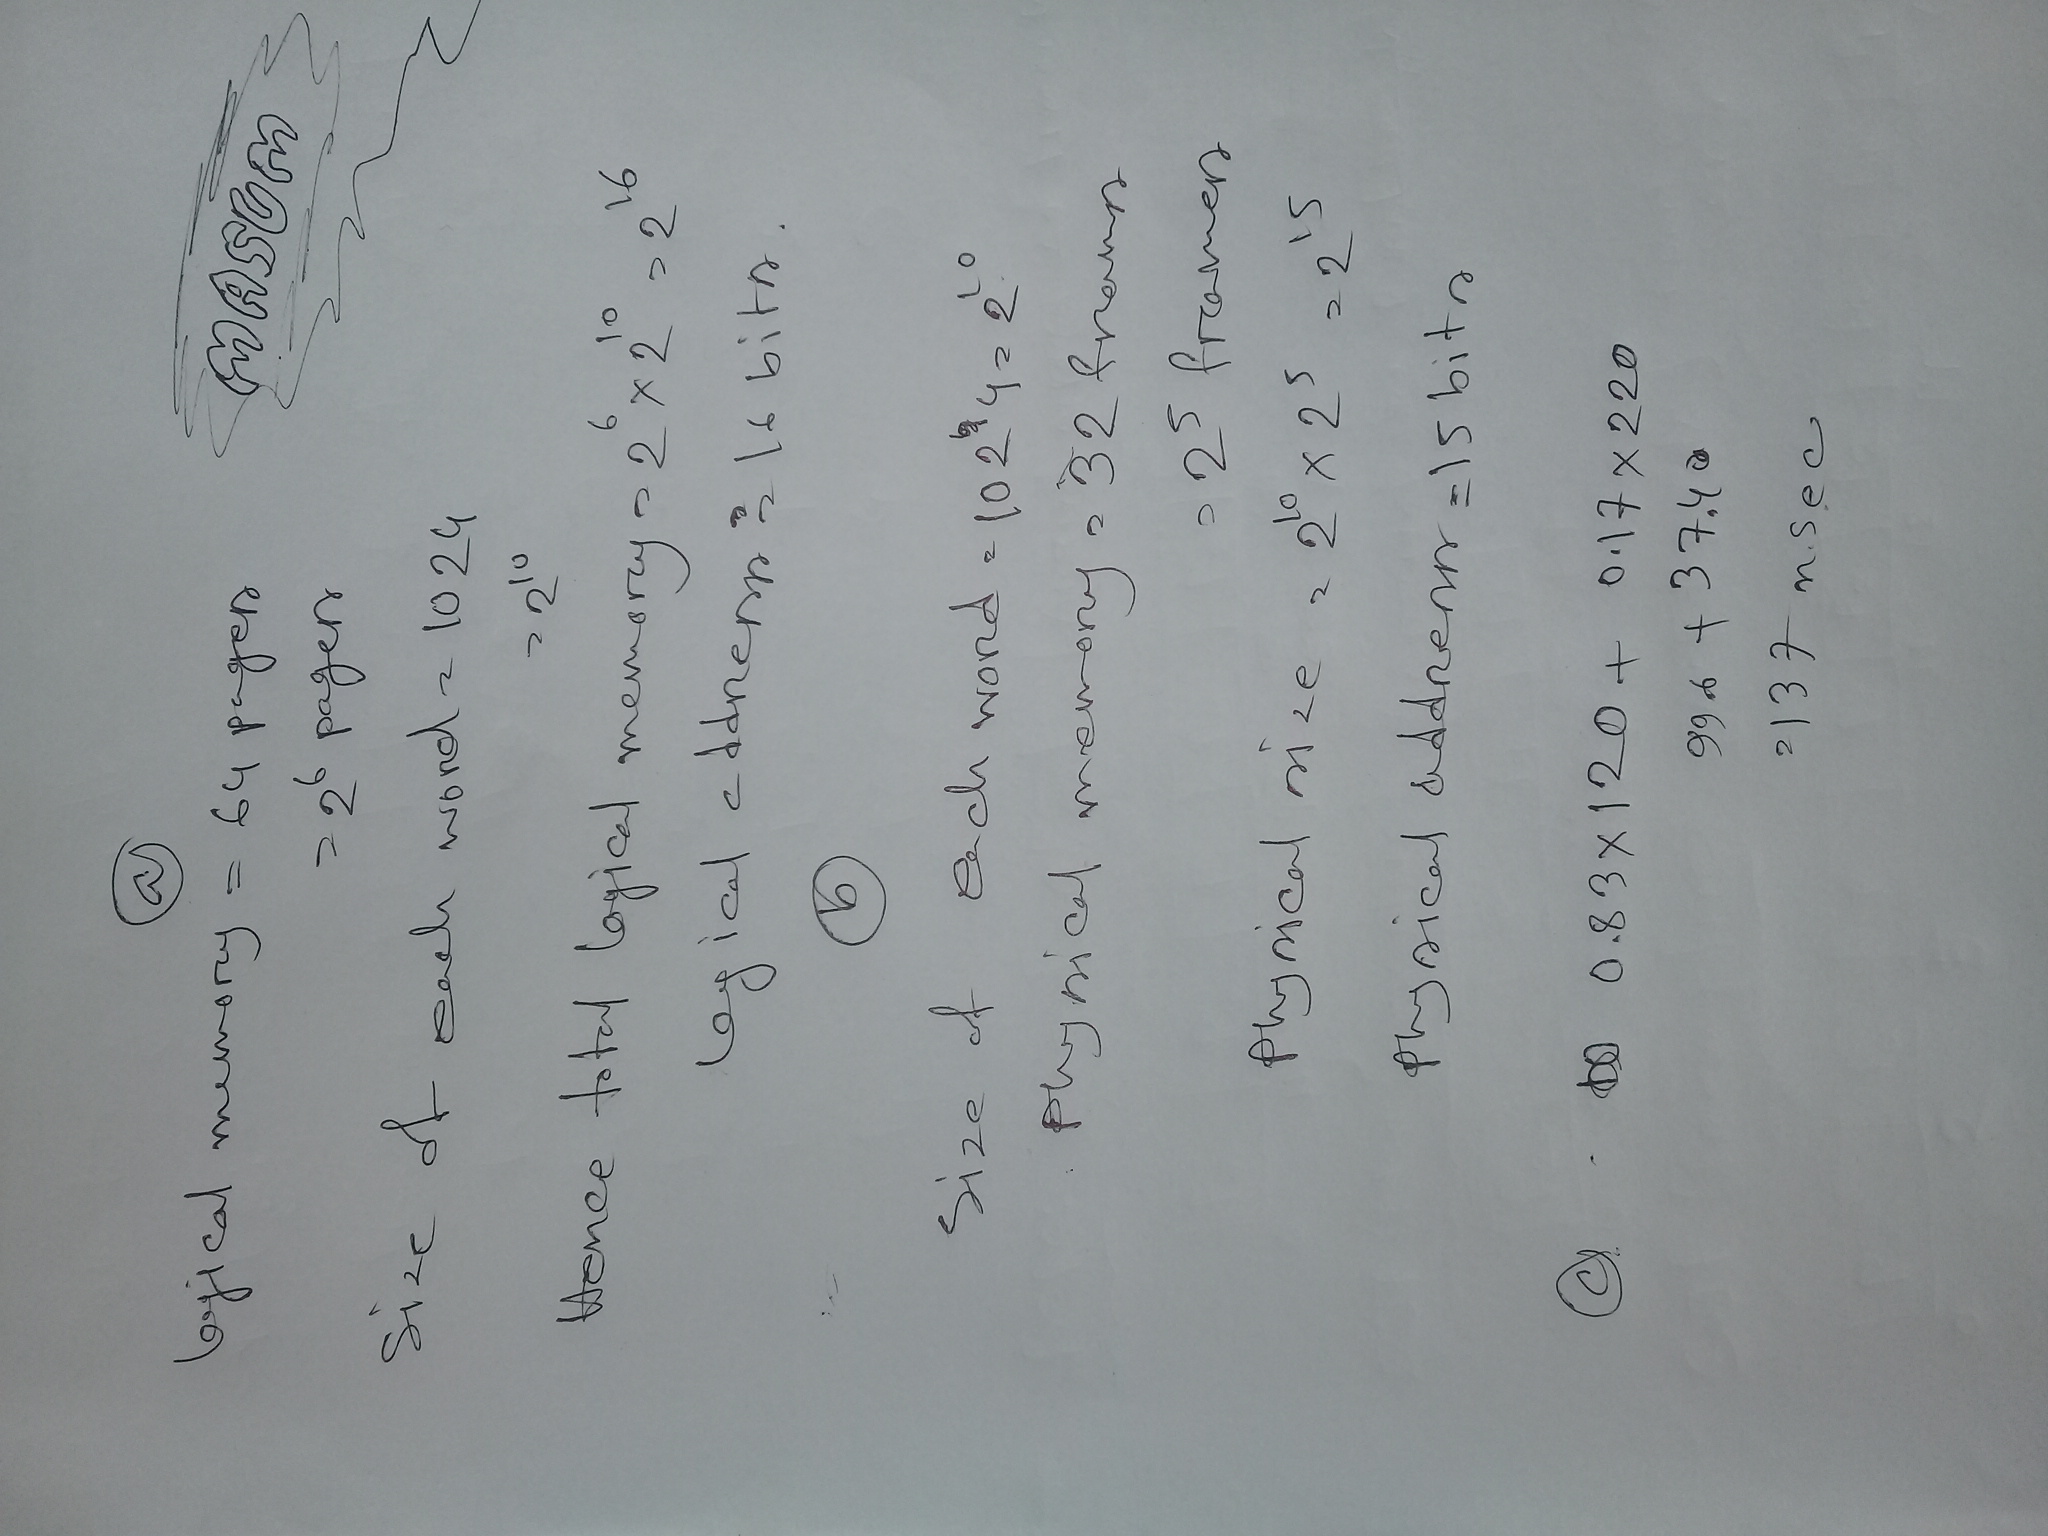 a
logical memory = 64 pages
= 2^6 pages
MASUM
Size of each word = 1024
= 2^10
Hence total logical memory = 2^6 × 2^10 = 2^16
logical address = 16 bits.
b
Size of each word = 1024 = 2^10
Physical memory = 32 frams
= 2^5 frames
Physical size = 2^10 × 2^5 = 2^15
Physical address = 15 bits
c 0.83 × 120 + 0.17 × 220
99.6 + 37.40
= 137 n.sec